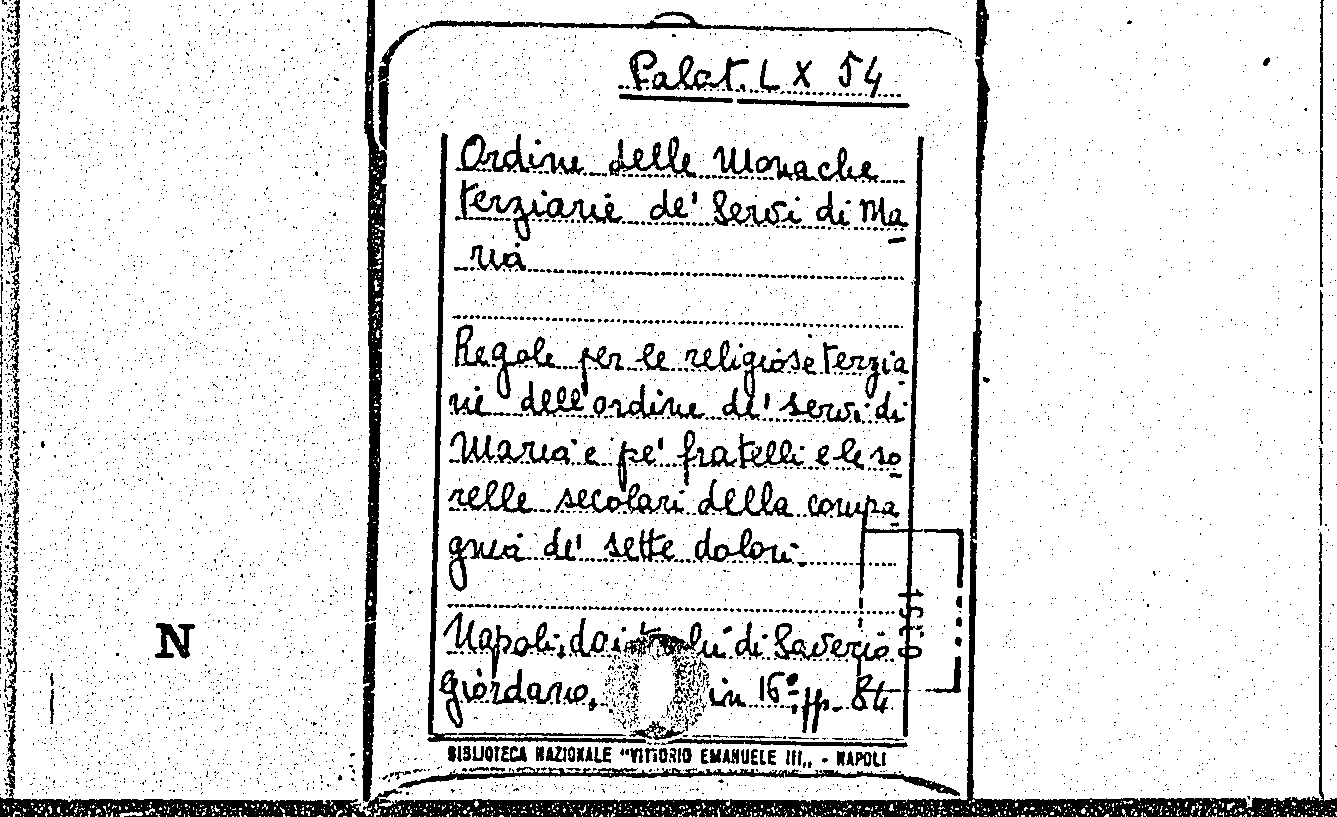 Palat. L X 54
Ordine delle Monache
terziarie de' Servi di Ma
ria
Regole per le religiose terzia
rie dell'ordine de' servi di
Maria e pe' fratelli e le so
relle secolari della compa
gnia de' sette dolori.
Napoli, di Saverio
Giordano, in 16º, pp. 84
N
BIBLIOTECA NAZIONALE "VITTORIO EMANUELE III„ - NAPOLI